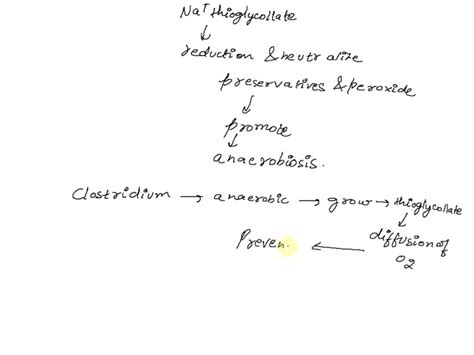 Na⁺ thioglycollate
↓
reduction & neutralize
preservatives & peroxide
↓
promote
↓
anaerobiosis.
Clostridium → anaerobic → grow → thioglycollate
↓
diffusion of
O2
← 
Preven.